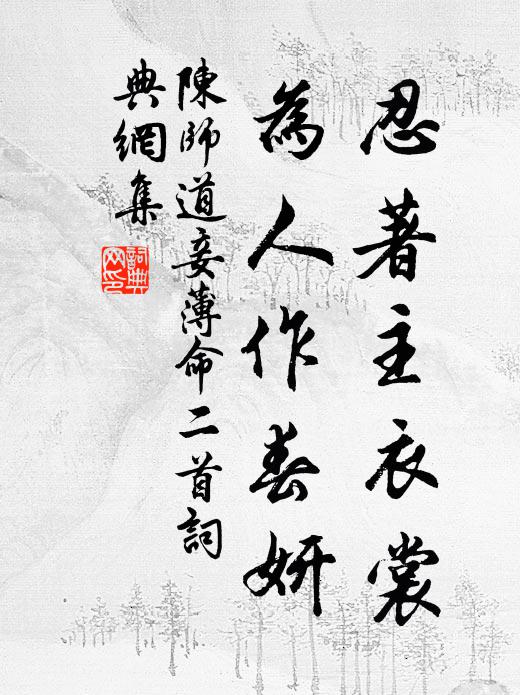 忍著主衣裳
為人作春妍
陳師道妾薄命二首詞
典網集
詞典網印